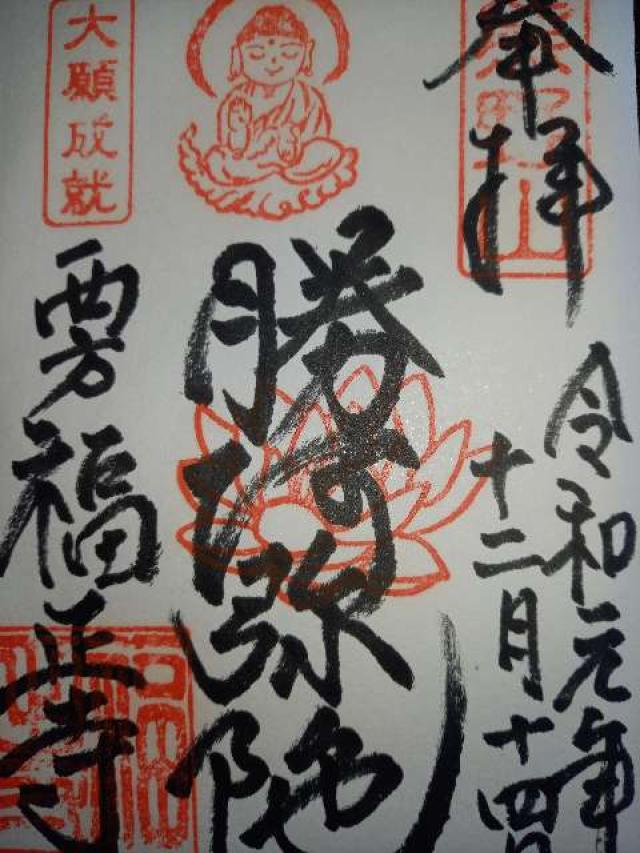 奉拝
令和元年
十二月十四日
勝阿弥陀
福正寺
大願成就